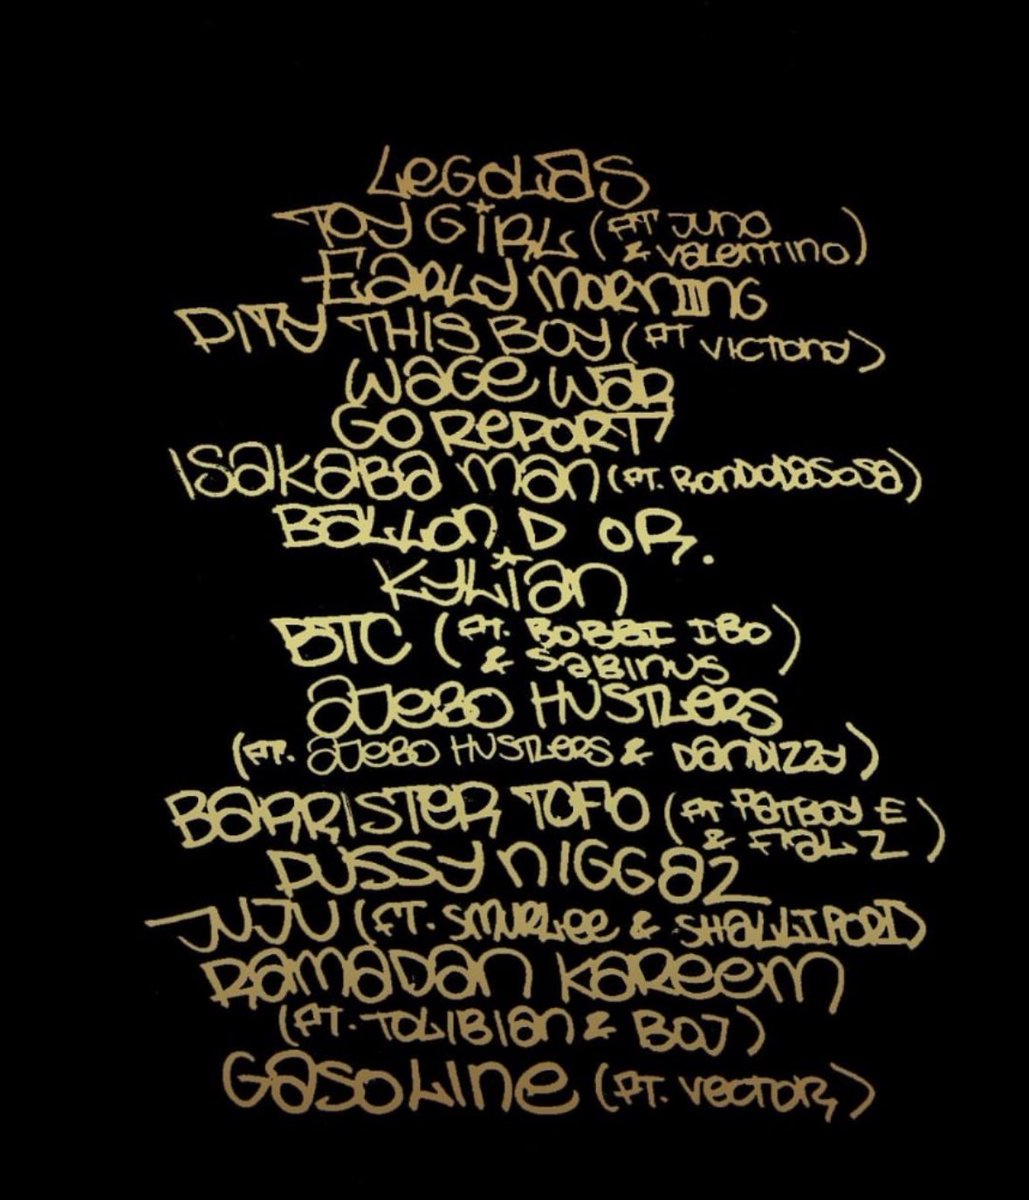 LEGOLAS
TOY GIRL (FT JUNO
& VALENTINO)
EARLY MORNING
PITY THIS BOY (FT VICTONY)
WAGE WAR
GO REPORT
ISAKABA MAN (FT. RONDODASOSA)
BALLON D OR.
KYLIAN
BTC (FT. BOBBI IBO
& SABINUS)
AJEBO HUSTLERS
(FT. AJEBO HUSTLERS & DANDIZZY)
BARRISTER TOFO (FT PATBOY E
& FTAL Z)
PUSSY NIGGAZ
JUJU (FT. SMURLEE & SHALLIPOPI)
RAMADAN KAREEM
(FT. TOLIBIAN & BOJ)
GASOLINE (FT. VECTOR)